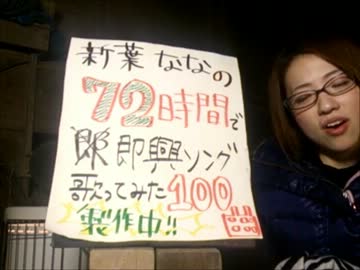 新葉ななの
72時間で
即興ソング
歌ってみた100
製作中!!